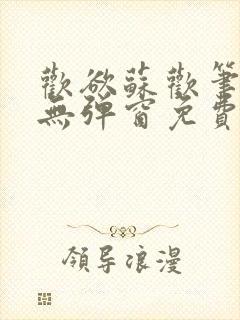 歡欲蘇歡筆
無彈窗免費
領导浪漫